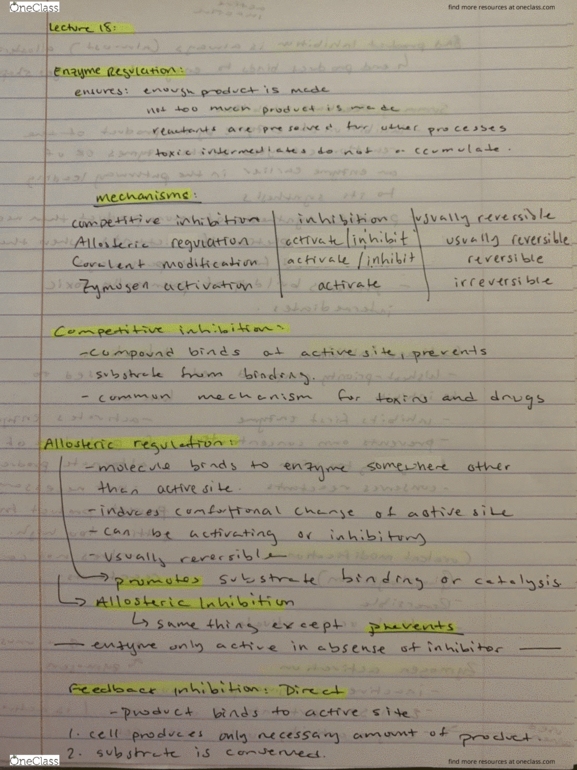 OneClass
find more resources at oneclass.com
Lecture 18:
Enzyme Regulation:
ensures: enough product is made
not too much product is made
reactants are preserved for other processes
toxic intermediates do not accumulate.
mechanisms:
competitive inhibition | inhibition | usually reversible
Allosteric regulation | activate/inhibit | usually reversible
Covalent modification | activate/inhibit | reversible
Zymogen activation | activate | irreversible
Competitive inhibition:
-compound binds at active site, prevents
substrate from binding.
- common mechanism for toxins and drugs
Allosteric regulation:
-molecule binds to enzyme somewhere other
than active site.
-induces conformational change of active site
-can be activating or inhibitory
-usually reversible
→ promotes substrate binding or catalysis
→ Allosteric Inhibition
↳ same thing except prevents
— enzyme only active in absense of inhibitor —
Feedback inhibition: Direct
-product binds to active site
1. cell produces only necessary amount of product.
2. substrate is conserved.
OneClass
find more resources at oneclass.com